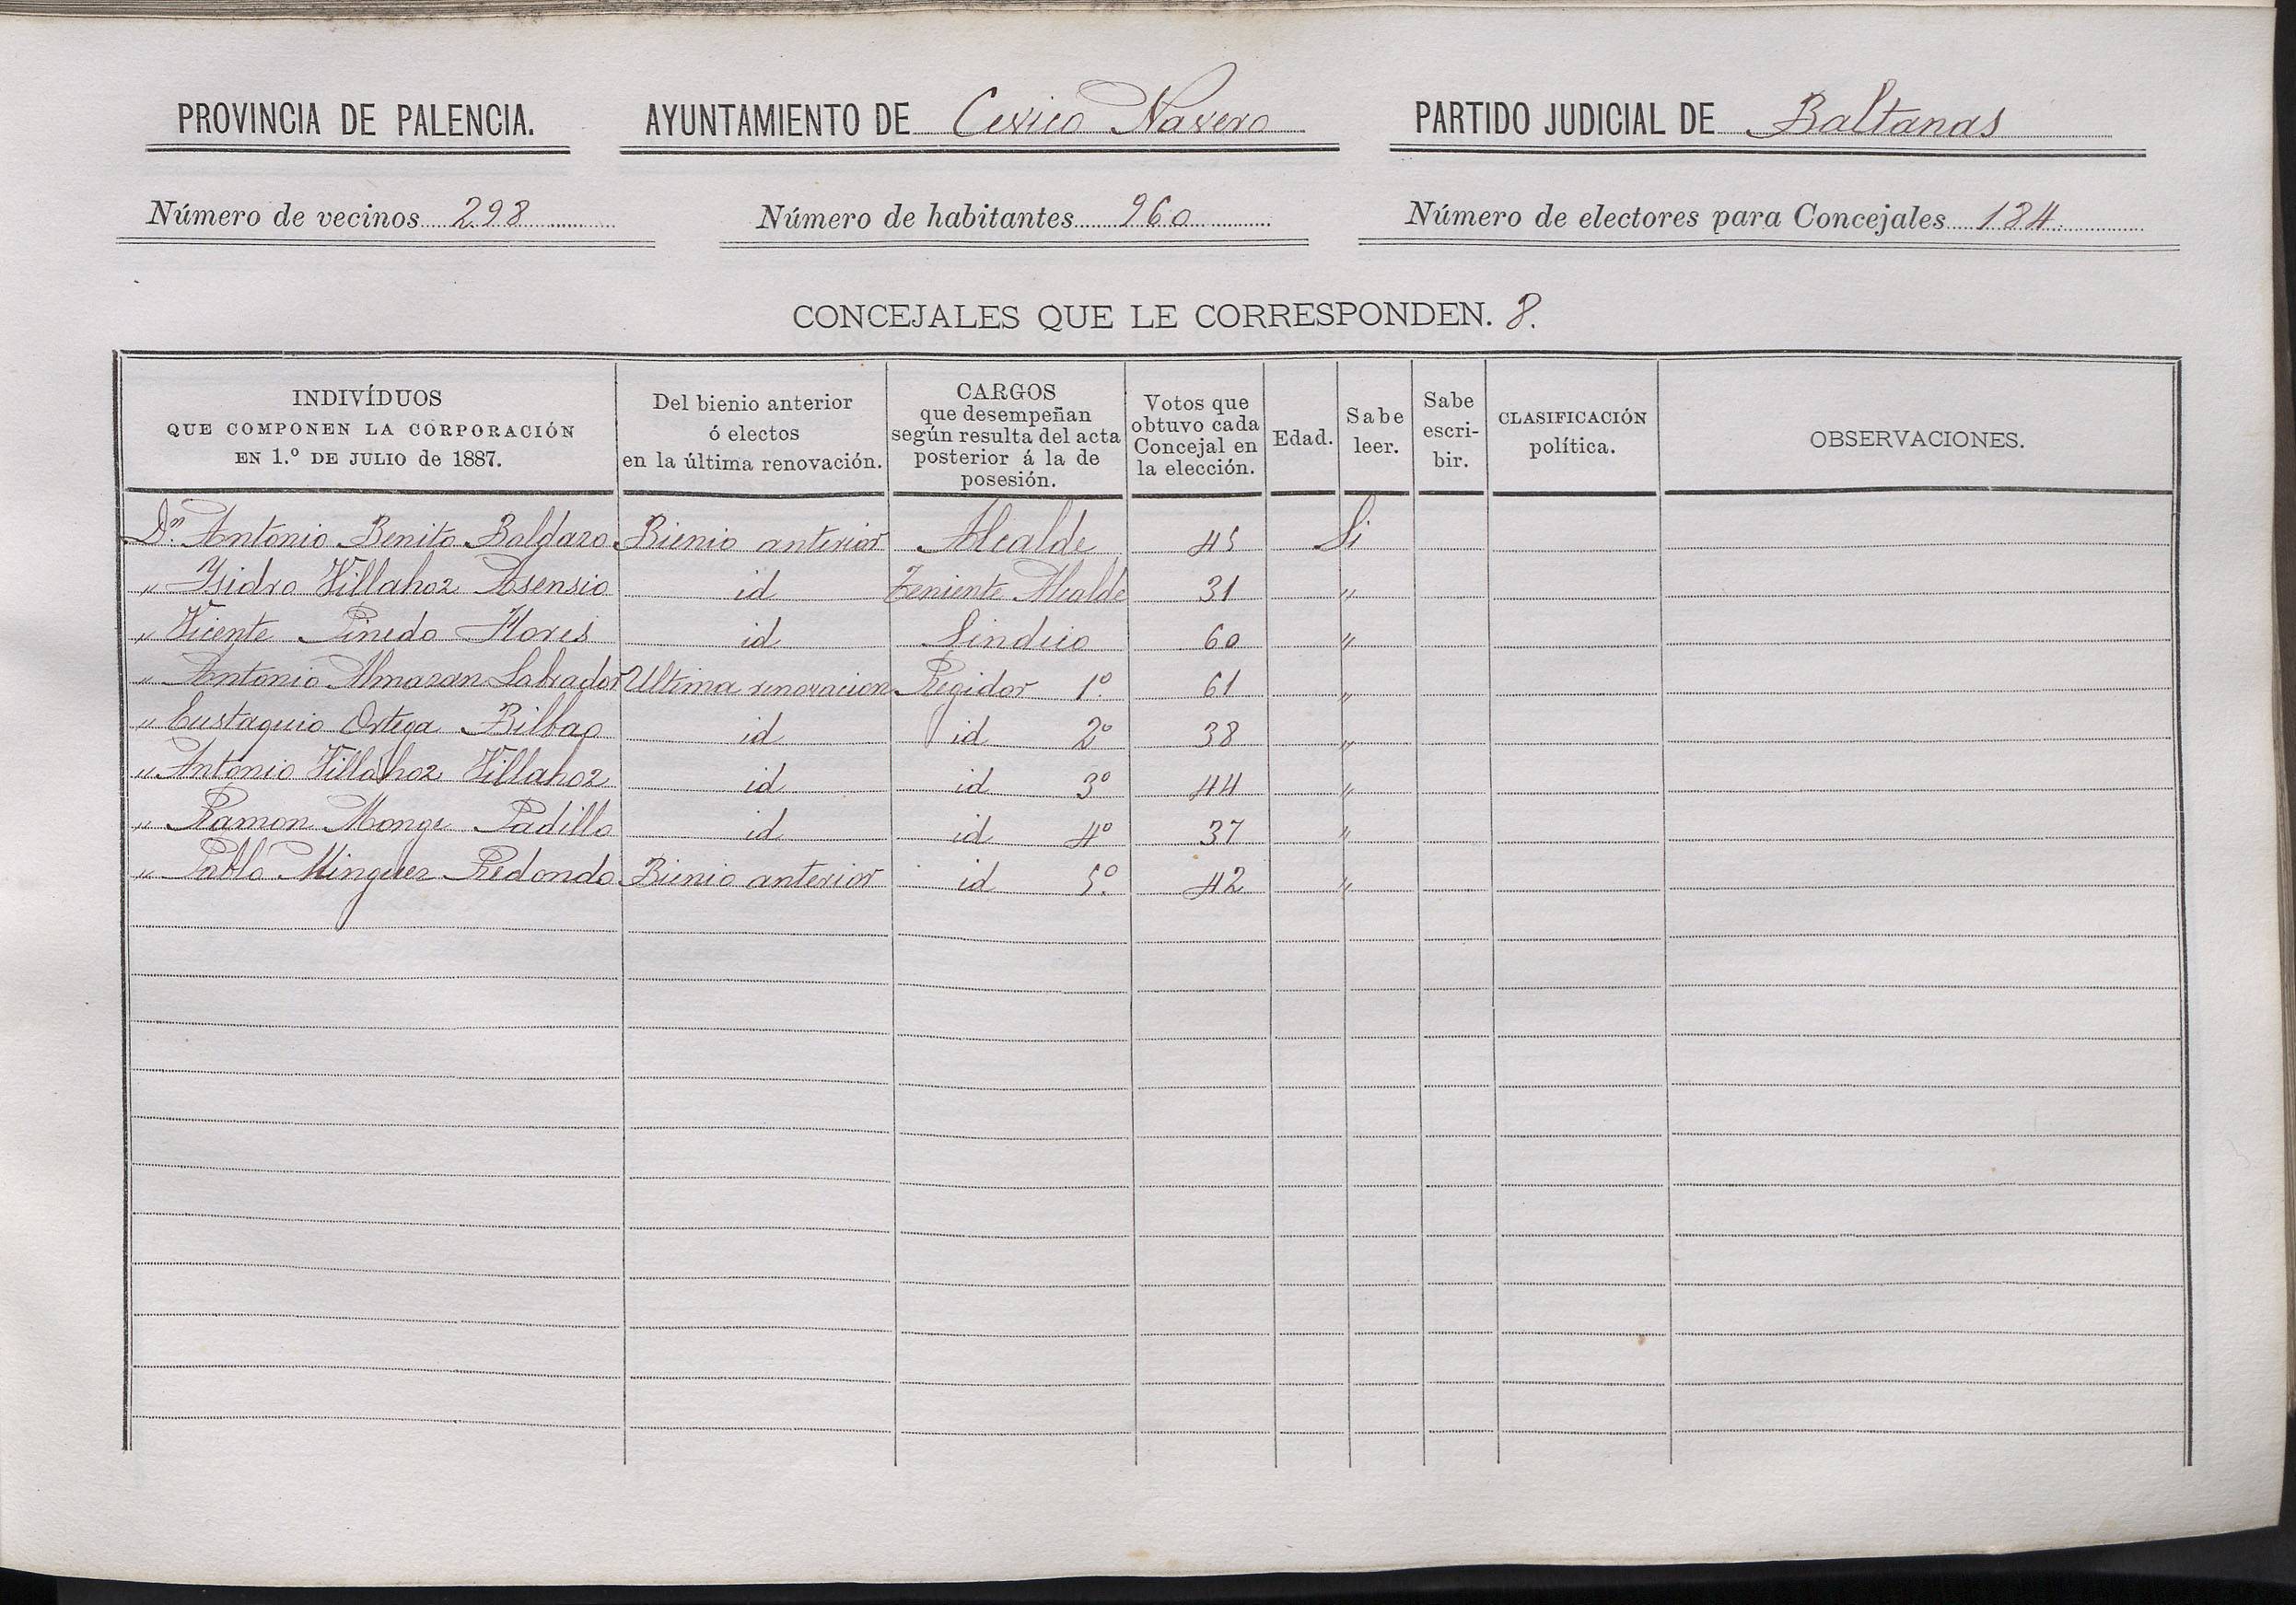 PROVINCIA DE PALENCIA. AYUNTAMIENTO DE Cevico Navero PARTIDO JUDICIAL DE Baltanas
Número de vecinos 298 Número de habitantes 960 Número de electores para Concejales 184
CONCEJALES QUE LE CORRESPONDEN. 8.
INDIVÍDUOS
QUE COMPONEN LA CORPORACIÓN
EN 1.º DE JULIO de 1887.
Del bienio anterior
ó electos
en la última renovación.
CARGOS
que desempeñan
según resulta del acta
posterior á la de
posesión.
Votos que
obtuvo cada
Concejal en
la elección.
Edad.
Sabe
leer.
Sabe
escri-
bir.
CLASIFICACIÓN
política.
OBSERVACIONES.
Dn. Antonio Benito Baldazo Bienio anterior Alcalde 45 Si
" Ysidro Villahoz Asensio id Teniente Alcalde 31 "
" Vicente Pinedo Flores id Sindico 60 "
" Antonio Almazan Labrador Ultima renovacion Regidor 1º 61 "
" Eustaquio Ortega Bilbao id id 2º 38 "
" Antonio Villahoz Villahoz id id 3º 44 "
" Ramon Monge Padilla id id 4º 37 "
" Pablo Minguez Redondo Bienio anterior id 5º 42 "